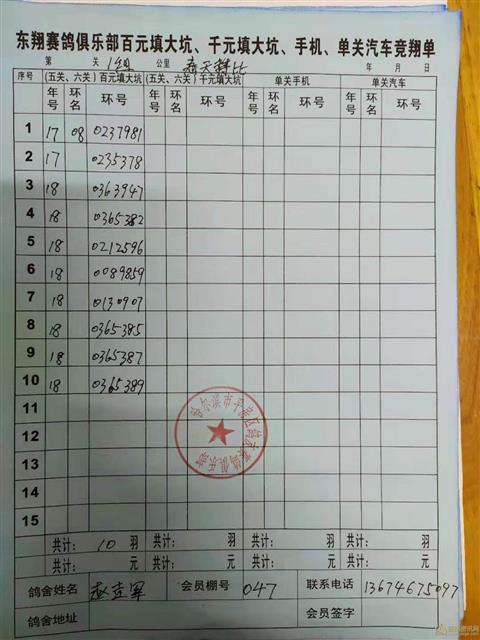 东翔赛鸽俱乐部百元填大坑、千元填大坑、手机、单关汽车竞翔单
第 关 1组 公里 春天群比 年 月 日
序号 (五关、六关)百元填大坑 (五关、六关)千元填大坑 单关手机 单关汽车
年号 环名 环号 年号 环名 环号 年号 环名 环号 年号 环名 环号
1 17 08 0237981
2 17 0235378
3 18 0363947
4 18 0365382
5 18 0212596
6 18 0089859
7 18 0130907
8 18 0365385
9 18 0365387
10 18 0365389
11
12
13
14
15
哈尔滨市平房区东翔赛鸽俱乐部
共计: 10 羽 共计: 羽 共计: 羽 共计: 羽
共计: 元 共计: 元 共计: 元 共计: 元
鸽舍姓名 会员棚号 047 联系电话 13674675097
鸽舍地址 会员签字